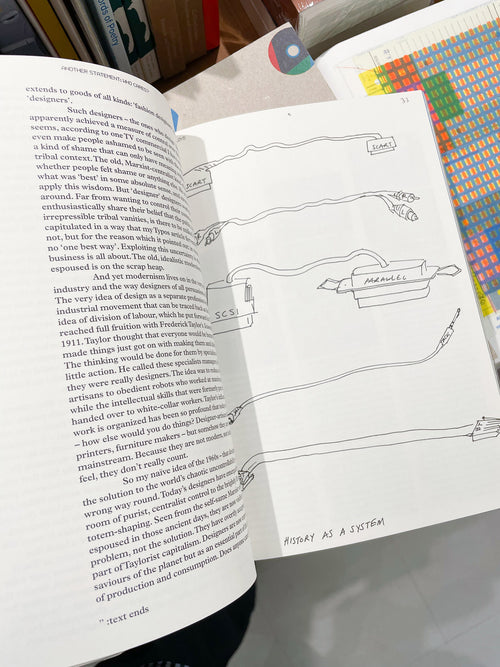 rds of Poetry
ANOTHER STATEMENT: WHO CARES?
extends to goods of all kinds: 'fashion
'designers'.
Such designers – the ones who
apparently achieved a measure of contr
seems, according to one TV commercial
even make people ashamed to be seen with
a kind of shame that can only have mean
tribal context. The old, Marxist-centralist
whether people felt shame or anything else
what was 'best' in some absolute sense, and
apply this wisdom. But 'designer' designers
around. Far from wanting to control their
enthusiastically share their belief that the
irrepressible tribal vanities, is there to be
capitulated in a way that my Typos article
not, but for the reason which it pointed out:
no 'one best way'. Exploiting this uncertainty
business is all about. The old, idealistic
espoused is on the scrap heap.
And yet modernism lives on in the
industry and the way designers of all persua
The very idea of design as a separate profess
industrial movement that can be traced ba
idea of division of labour, which he put forwar
reached full fruition with Frederick Taylor's
1911. Taylor thought that everyone would be
made things just got on with making them
The thinking would be done for them by specia
little action. He called these specialists manage
they were really designers. The idea was to
artisans to obedient robots who worked at
while the intellectual skills that were formerly
handed over to white-collar workers. Taylor's
work is organized has been so profound that
– how else would you do things? Designer-artisans
printers, furniture makers – but somehow they
mainstream. Because they are not modern,
feel, they don't really count.
So my naïve idea of the 1960s – that
the solution to the world's chaotic uncontroll
wrong way round. Today's designers have
room of purist, centralist control to the bright
totem-shaping. Seen from the self-same Marxist
espoused in those ancient days, they are now
problem, not the solution. They have overtly
part of Taylorist capitalism. Designers are
saviours of the planet but as an essential part
of production and consumption. Does anyone
" :text ends
33
SCART
SCART
SCSI
PARALLEL
HISTORY AS A SYSTEM